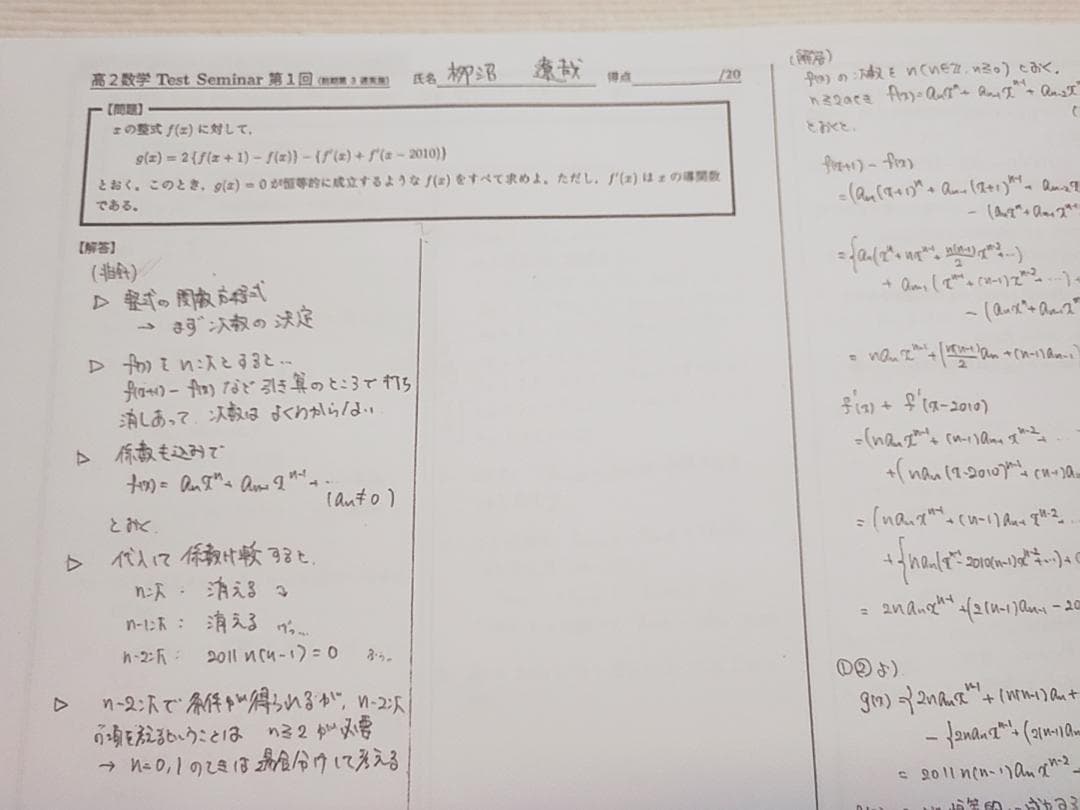 高2数学 Test Seminar 第1回 氏名 柳沼 遼哉 得点 /20
【問題】
xの整式 f(x) に対して，
g(x) = 2{f(x+1) − f(x)} − {f′(x) + f′(x − 2010)}
とおく。このとき，g(x) = 0 が恒等的に成立するような f(x) をすべて求めよ。ただし，f′(x) は x の導関数
である。
【解答】
(指針)
▷ 整式の関数方程式
→ まず次数の決定
▷ f(x)をn次とすると…
f(x+1) − f(x) など引き算のところで打ち
消しあって、次数はよくわからない
▷ 係数も込みで
f(x) = aₙxⁿ + aₙ₋₁xⁿ⁻¹ + …
(aₙ≠0)
とおく。
▷ 代入して係数比較すると、
n次: 消える
n-1次: 消える
n-2次: 2011n(n-1) = 0
▷ n-2次で条件が得られるが、n-2次
の項を考えるということは n≧2が必要
→ n=0,1のときは場合分けして考える
(解答)
f(x)の次数をn(n∈Z, n≧0)とおく。
n≧2のとき f(x) = aₙxⁿ + aₙ₋₁xⁿ⁻¹ + aₙ₋₂x
とおくと、
f(x+1) − f(x)
= (aₙ(x+1)ⁿ + aₙ₋₁(x+1)ⁿ⁻¹ + aₙ₋₂
− (aₙxⁿ + aₙ₋₁xⁿ⁻¹
= {aₙ(xⁿ + nxⁿ⁻¹ + n(n-1)/2 xⁿ⁻² + …)
+ aₙ₋₁(xⁿ⁻¹ + (n-1)xⁿ⁻² + …) +
− (aₙxⁿ + aₙ₋₁xⁿ
= naₙxⁿ⁻¹ + (n(n-1)/2 aₙ + (n-1)aₙ₋₁
f′(x) + f′(x-2010)
= (naₙxⁿ⁻¹ + (n-1)aₙ₋₁xⁿ⁻² + …
+ (naₙ(x-2010)ⁿ⁻¹ + (n-1)a
= (naₙxⁿ⁻¹ + (n-1)aₙ₋₁xⁿ⁻² …
+ {naₙ(xⁿ⁻¹ − 2010(n-1)xⁿ⁻² + …) + (
= 2naₙxⁿ⁻¹ + (2(n-1)aₙ₋₁ − 20
①②より
g(x) = {2naₙxⁿ⁻¹ + (n(n-1)aₙ +
− {2naₙxⁿ⁻¹ + (2(n-1)a
= 2011n(n-1)aₙxⁿ⁻²